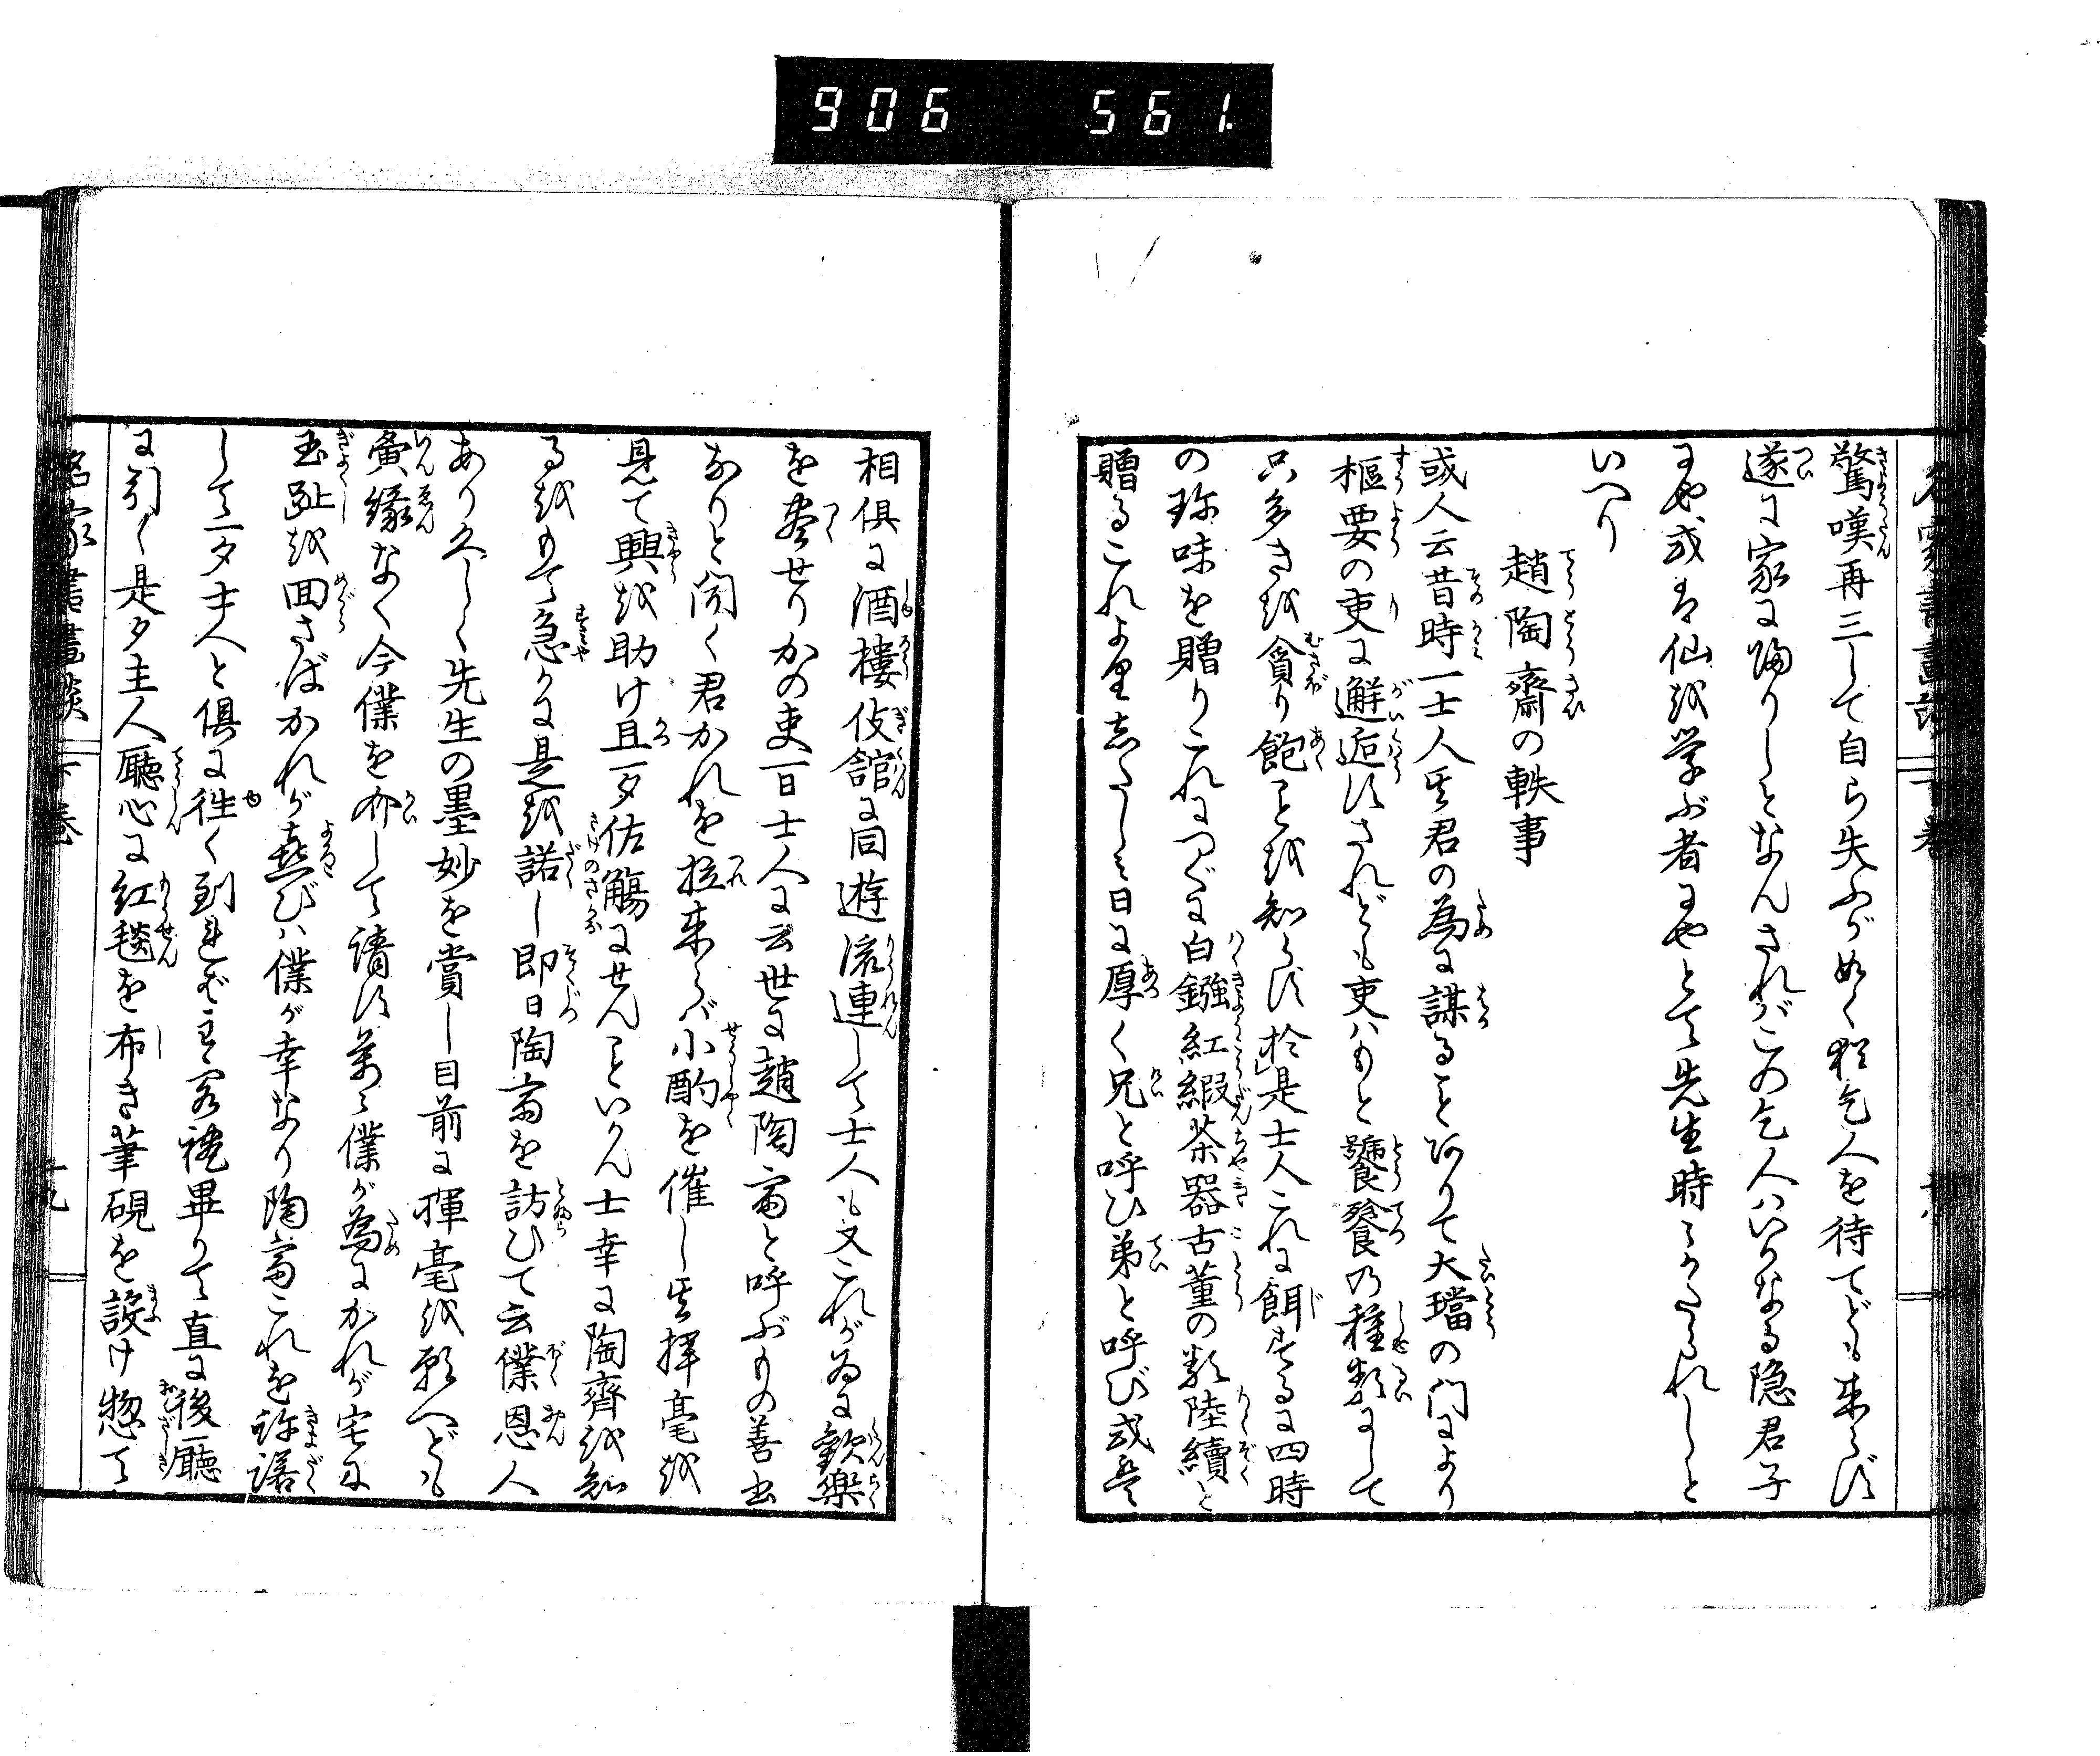 906 561
驚嘆再三して自ら失ふが如く猩々人を待てども来らず
遂に家に帰りしとなんされバこの乞人ハいかなる隠君子
にや或は仙を学ぶ者にやとて先生時々かたられしと
いへり
趙陶齋の軼事
或人云昔時一士人其君の為に謀ることありて大璫の門により
樞要の吏に邂逅すされども吏ハもと饕餮の種類にして
只多きを貪り飽ことを知らず於是士人これに餌するに四時
の珎味を贈りこれにつぐに白鏹紅緞茶器古董の類陸續と
贈るこれより志たしミ日に厚く兄と呼ひ弟と呼び或は
相俱に酒樓伎館に同遊流連して士人も又これが為に歓樂
を尽せりかの吏一日士人に云世に趙陶齋と呼ぶもの善書
なりと聞く君かれを拉来らバ小酌を催し其揮毫を
見て興を助け且一夕佐觴にせんといへり士幸に陶齊を知
るをもて急かに是を諾し即日陶齋を訪ひて云僕恩人
あり久しく先生の墨妙を賞し目前に揮毫を願へども
夤縁なく今僕を介して請す萬々僕が為にかれが宅に
玉趾を回さばかれが喜びハ僕が幸なり陶齋これを許諾
して一夕士人と俱に徃く到れば主客禮畢りて直に後廳
に引く是夕主人廳心に紅毯を布き筆硯を設け惣て
名家書畫談 下巻